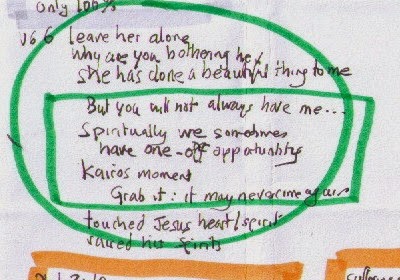 only 100%
v6 6 leave her alone
why are you bothering her
she has done a beautiful thing to me
But you will not always have me...
Spiritually we sometimes
have one-off opportunitys
Kairos moment
Grab it: it may never come again
touched Jesus heart/spirit
raised his spirits